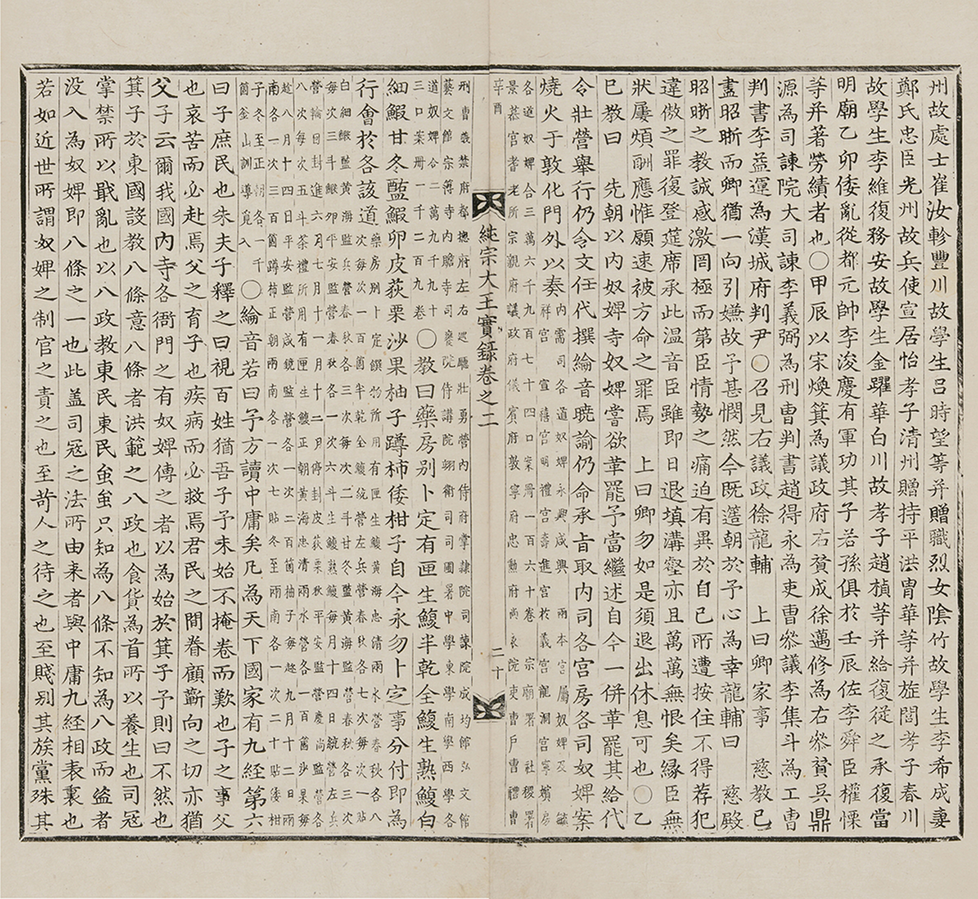 州故處士崔汝軫豐川故學生呂時望等并贈職烈女陰竹故學生李希成妻
鄭氏忠臣光州故兵使宣居怡孝子清州贈持平洪胄華等并旌閭孝子春川
故學生李維復務安故學生金躍華白川故孝子趙楨等并給復從之承復當
明廟乙卯倭亂從都元帥李浚慶有軍功其子若孫俱於壬辰佐李舜臣權慄
等并著勞績者也○甲辰以宋煥箕為議政府右贊成徐邁修為右參贊吳鼎
源為司諫院大司諫李義弼為刑曹判書趙得永為吏曹參議李集斗為工曹
判書李益運為漢城府判尹○召見右議政徐龍輔 上曰卿家事 慈教已
盡昭晰而卿猶一向引嫌故予甚憫然今既造朝於予心為幸龍輔曰 慈殿
昭晰之教誠感激罔極而第臣情勢之痛迫有異於自己所遭按住不得荐犯
違傲之罪復登筵席承此溫音臣雖即日退填溝壑亦且萬萬無恨矣緣臣無
狀屢煩酬應惟願速被方命之罪焉 上曰卿勿如是須退出休息可也○乙
巳教曰 先朝以內奴婢寺奴婢嘗欲革罷予當繼述自今一併革罷其給代
令壯營舉行仍令文任代撰綸音曉諭仍命承旨取內司各宮房各司奴婢案
燒火于敦化門外以奏內需司各道奴婢永興咸興兩本宮屬奴婢及毓
祥宮宣禧宮明禮宮壽進宮於義宮龍洞宮寧嬪房
各道奴婢合三萬六千九百七十四口冊一百六十卷宗廟署社稷署
景慕宮耆老所宗親府議政府儀賓府敦寧府忠勳府尚衣院吏曹戶曹禮曹
辛酉
純宗大王實錄卷之二 二十
刑曹義禁府都摠府左右巡廳壯勇營內侍府掌隸院司諫院成均館弘文館
藝文館宗簿寺內贍寺司饔院侍講院翊衛司司圃署中學東學南學西學各
道奴婢合二萬九千九十
三口案冊一千二百九卷○教曰藥房別卜定有匣生鰒半乾全鰒生熟鰒白
細鰕甘冬醢鰕卵皮荻栗沙果柚子蹲柿倭柑子自今永勿卜定事分付即為
行會於各該道藥房別卜定饌物所用有匣生鰒黃海忠清兩水營春秋各八
次每次一百箇半乾全鰒統營左兵營春秋各七次每次一貼
白細鰕醢黃海監兵營春秋各三次每次二斗甘冬醢黃海監營春秋各三次
每次三斗鰕卵醢海營春秋各一次六斗生熟鰒每月十四日統營左兵
營輪回封進六月七月十一月十二月停封皮荻栗秋平安監營慶尚監營各
八次每次五斗茶禮所用有匣生鰒正朝黃海忠清兩水營各一次二百箇沙果每
趁八月十四日平安監營咸鏡監營各一次二百箇柚子每趁九月二十一日兩
南各一次三百箇蹲柿正朝兩南各一次七貼冬至兩南各一次十貼倭柑
子冬至正朝各一千
箇釜山訓導覓入○綸音若曰予方讀中庸矣凡為天下國家有九經第六
曰子庶民也朱夫子釋之曰視百姓猶吾子予未始不掩卷而歎也子之事父
也哀苦而必赴焉父之育子也疾病而必救焉君民之間眷顧蘄向之切亦猶
父子云爾我國內寺各衙門之有奴婢傳之者以為始於箕子予則曰不然也
箕子於東國設教八條意八條者洪範之八政也食貨為首所以養生也司寇
掌禁所以戢亂也以八政教東民東民蚩蚩只知為八條不知為八政而盜者
沒入為奴婢即八條之一也此盖司寇之法所由来者與中庸九經相表裏也
若如近世所謂奴婢之制官之責之也至苛人之待之也至賤别其族黨殊其